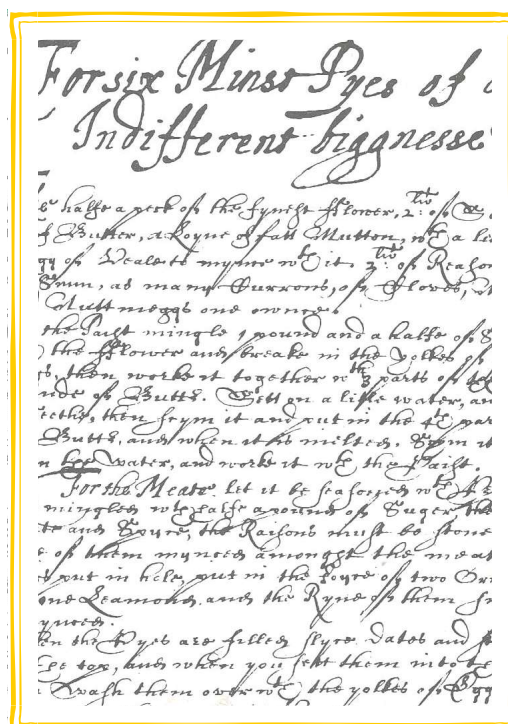 For six Minst Pyes of
Indifferent biggnesse
halfe a peck of the fynest Flower, 2li of
Butter, a Loyne of fatt Mutton, wth a
of Veale to mynse wth it 2li of Reaso
Sunn, as many Currons, of Cloves,
Nuttmeggs one ownce.
the Paist mingle 1 pound and a halfe of S
the Flower and breake in the yolkes of
s, then worke it together wth 3 parts of
nds of Butter. Sett on a litle water, an
seethe, then scym it and put in the 4th par
Butter, and when it is melted, Scym it
n water, and worke it wth the Paist.
For the Meate let it be seasoned wth
mingled wth halfe a pound of Suger the
te and Spyce, the Raisons must be stone
e of them mynced amonght the meat
s put in hole, put in the Joyce of two Or
one Leamond, and the Ryne of them
ynced.
en the Pyes are filled slyce Dates and
the top, and when you sett them into
Wash them over wth the yolkes of Egg